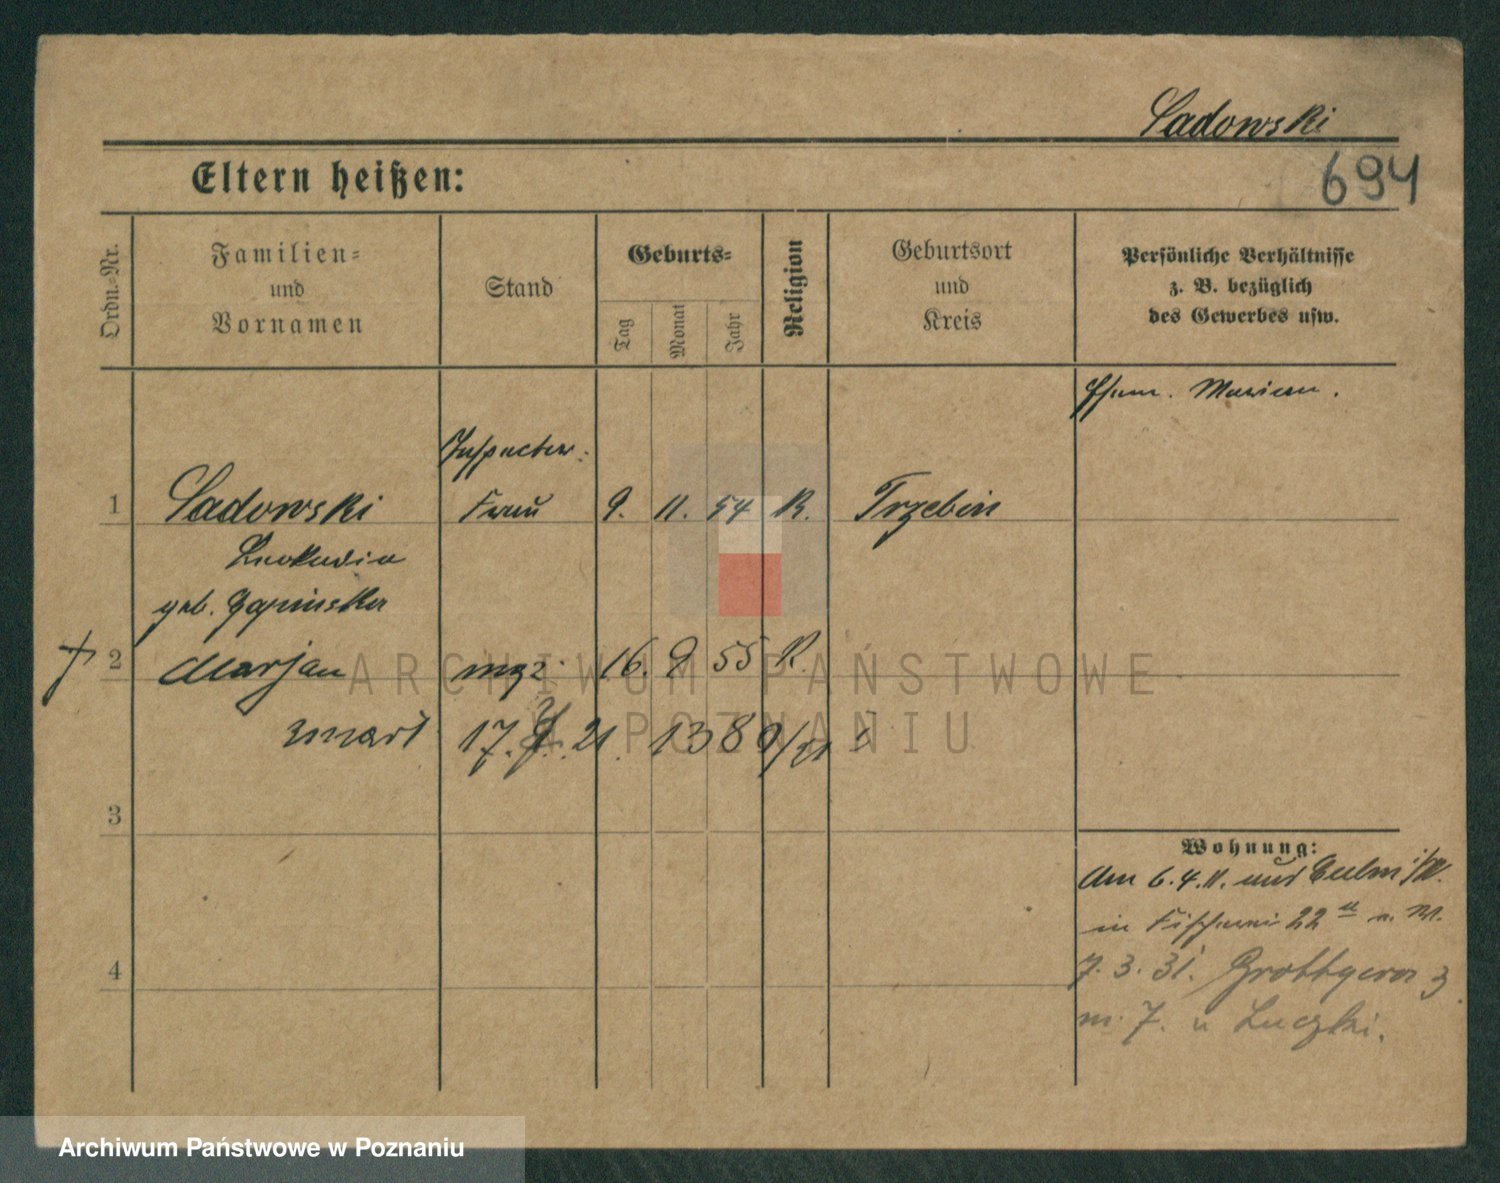 Sadowski
694
Eltern heißen:
Ordn.-Nr.
Familien-
und
Vornamen
Stand
Geburts-
Tag
Monat
Jahr
Religion
Geburtsort
und
Kreis
Persönliche Verhältnisse
z. B. bezüglich
des Gewerbes usw.
Ehem. Marian.
Inspector.
1 Sadowski Frau 9. 11. 54 K.
Leokadia
geb.
2 Marjan mąż 16. 9 55 K.
zmarł 17. 21. 1389/21
3
Wohnung:
Am 6.4.11. aus Culm
in Fischerei 22
4
7. 3. 31. Grottgera 3
m. 7. u
ARCHIWUM PAŃSTWOWE
W POZNANIU
Archiwum Państwowe w Poznaniu